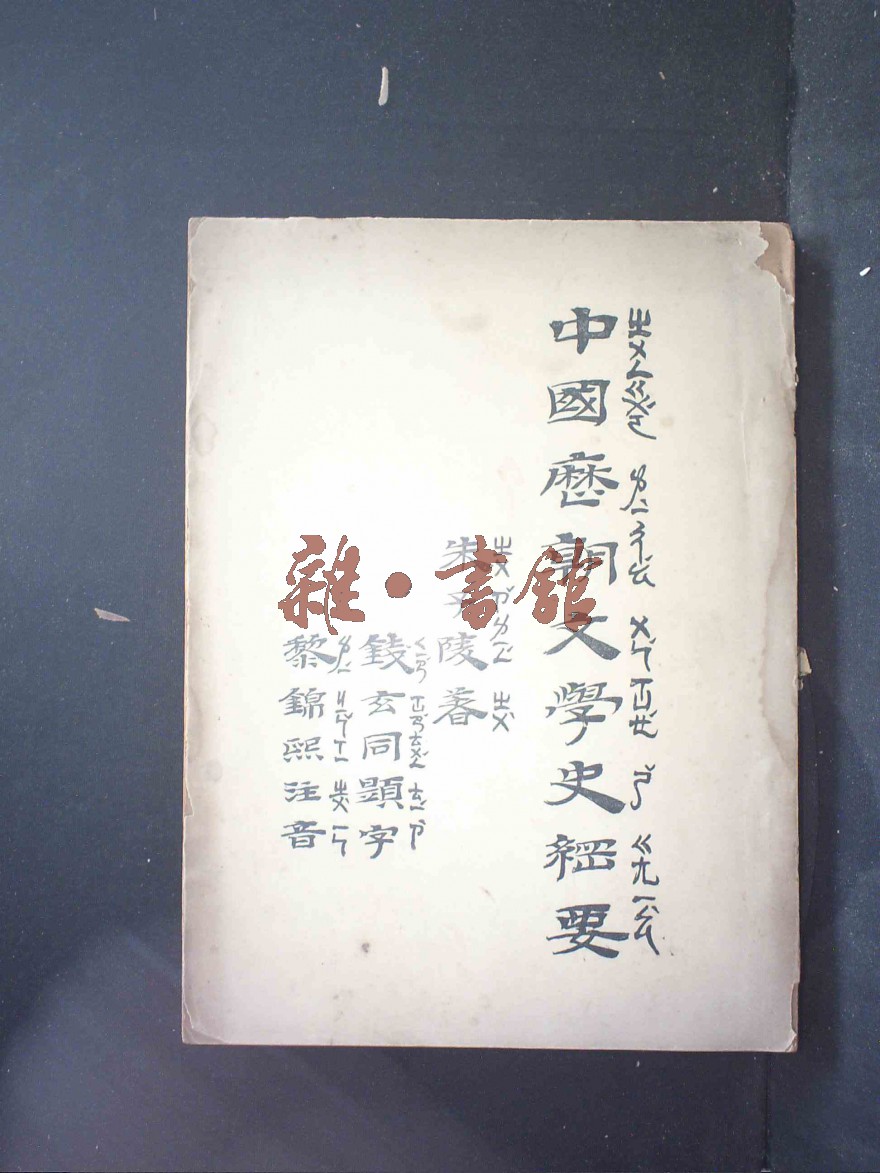 中國歷朝文學史綱要
ㄓㄨㄥㄍㄨㄛˊ ㄌㄧˋㄔㄠˊ ㄨㄣˊㄒㄩㄝˊ ㄕˇ ㄍㄤㄧㄠˋ
朱子陵著
ㄓㄨ ㄗˇㄌㄧㄥˊ ㄓㄨˋ
錢玄同題字
ㄑㄧㄢˊ ㄒㄩㄢˊㄊㄨㄥˊ ㄊㄧˊㄗˋ
黎錦熙注音
ㄌㄧˊ ㄐㄧㄣˇㄒㄧ ㄓㄨˋㄧㄣ
雜·書館